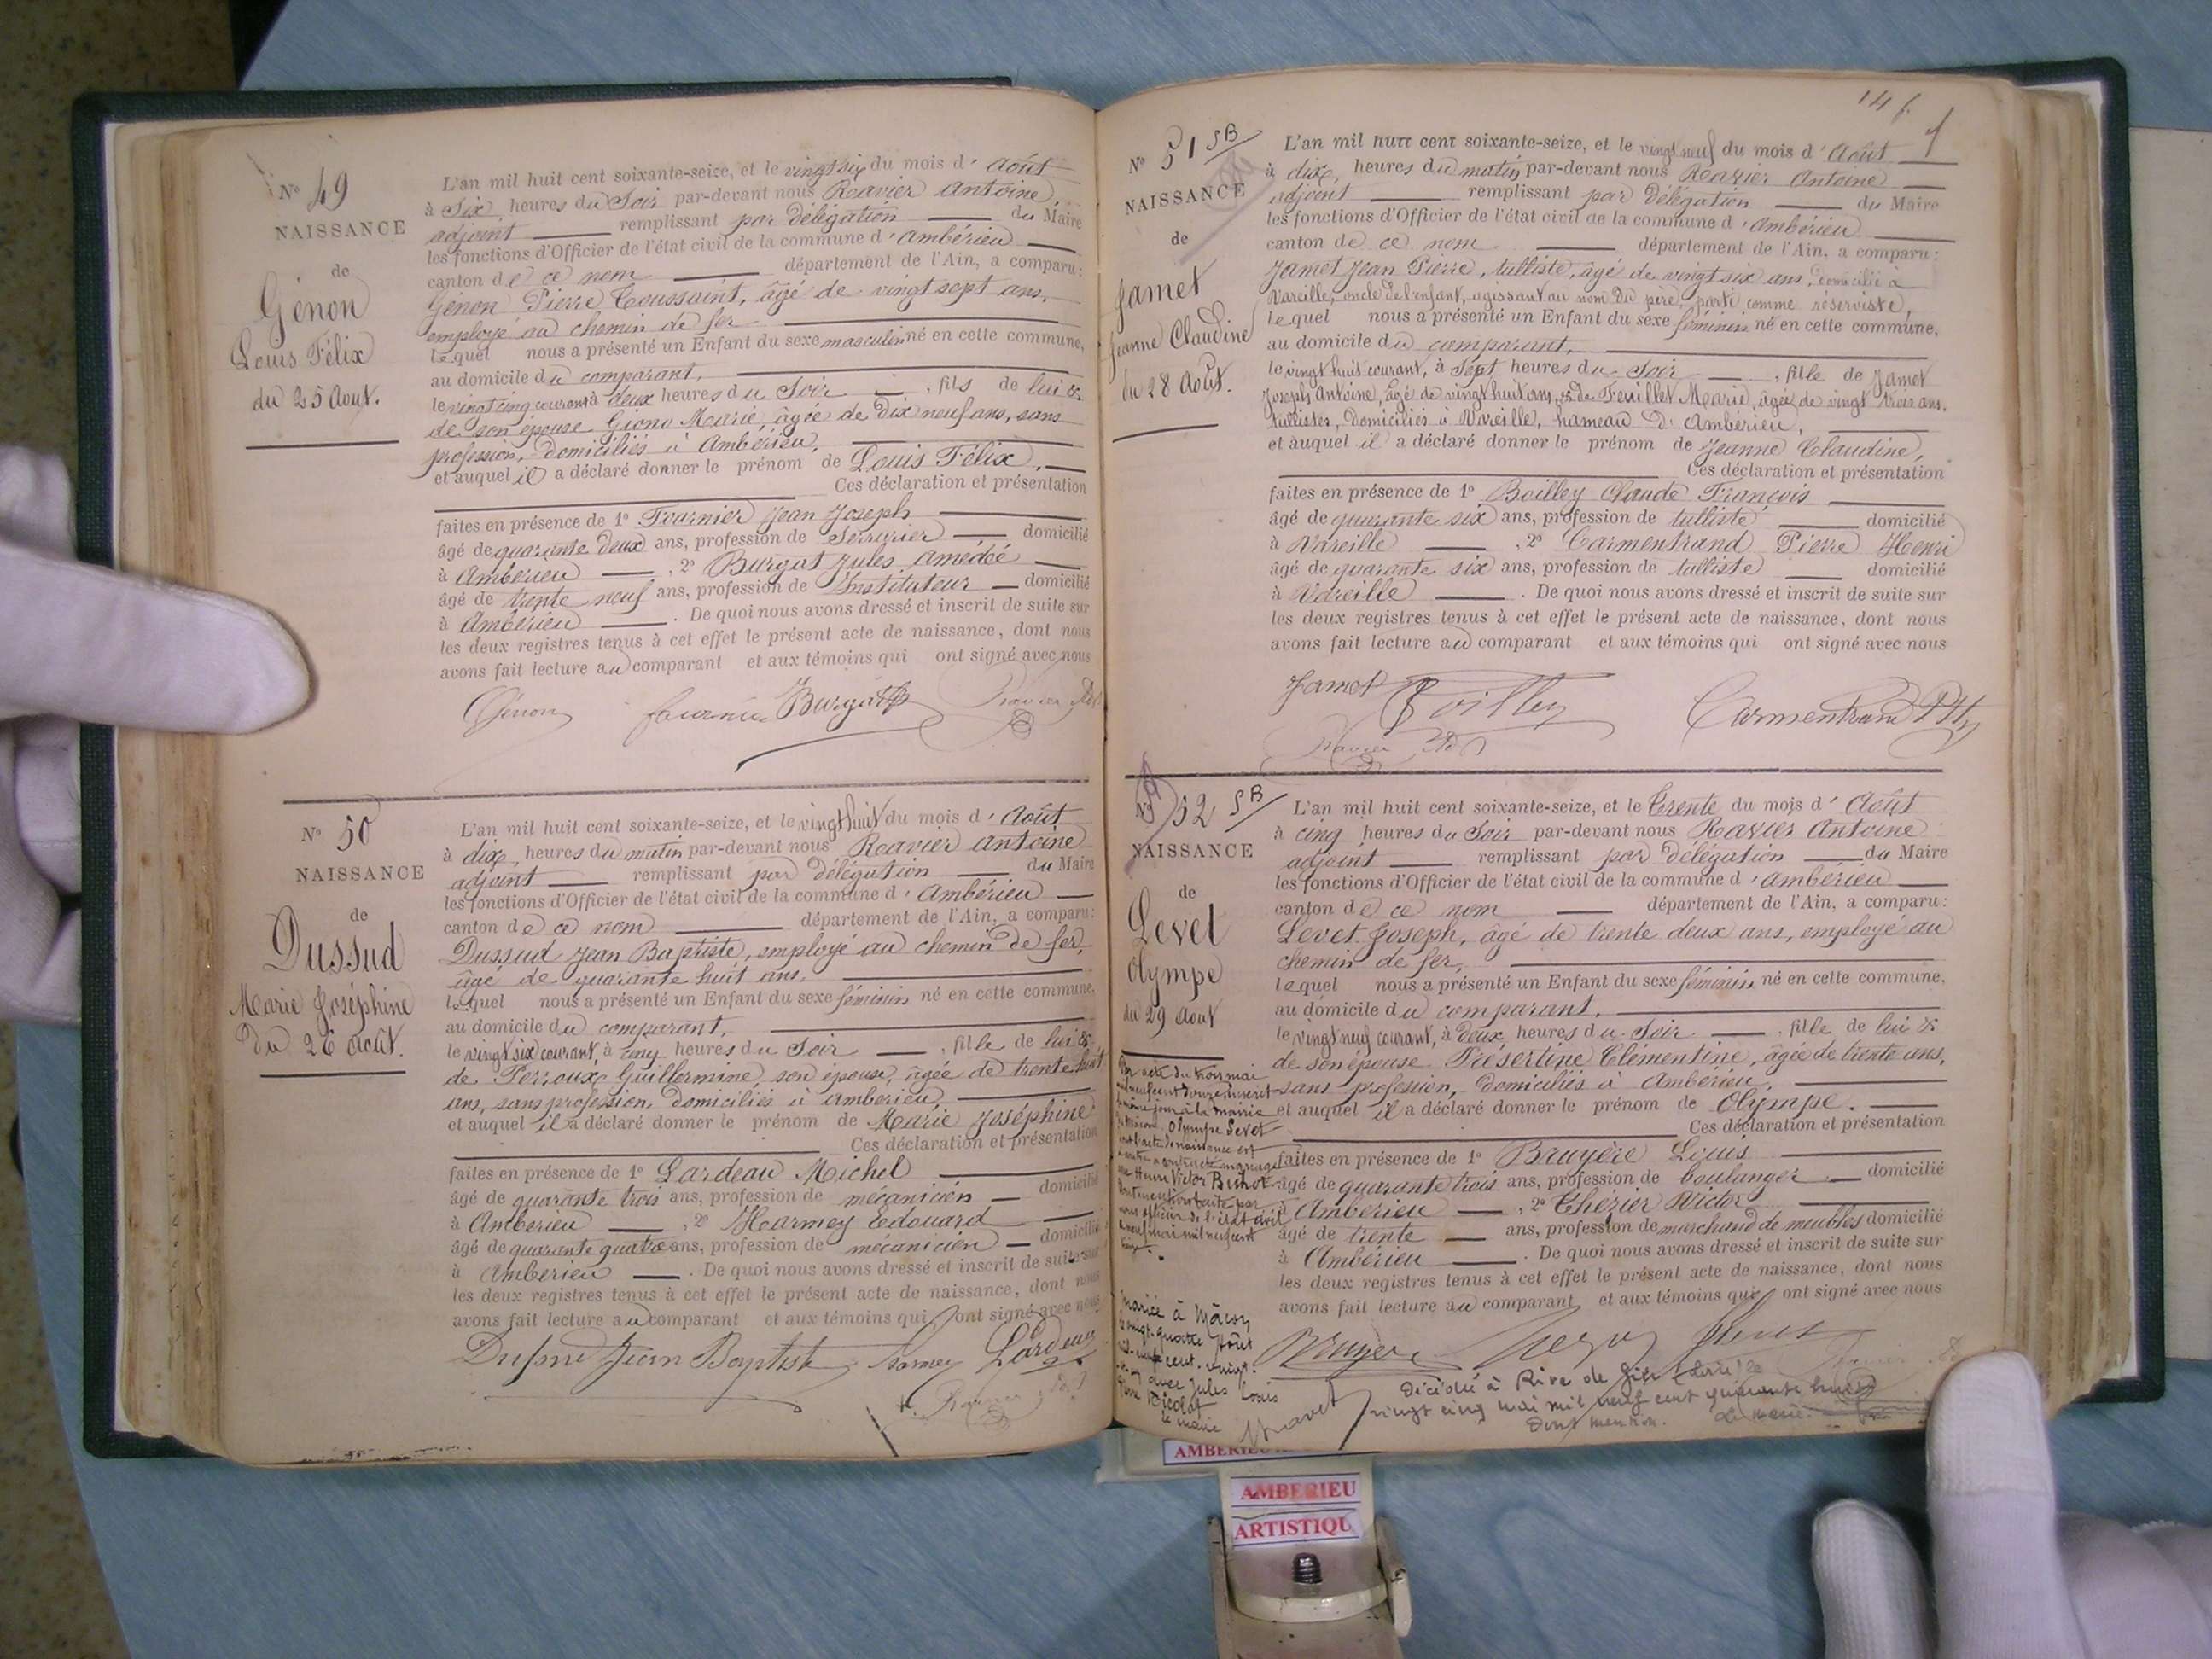 No 49
NAISSANCE
de
Génon
Louis Félix
du 25 Aout.
L'an mil huit cent soixante-seize, et le vingt six du mois d'Août
à Six heures du Soir par-devant nous Ravier Antoine,
adjoint remplissant par délégation du Maire
les fonctions d'Officier de l'état civil de la commune d'Ambérieu
canton de ce nom département de l'Ain, a comparu:
Génon Pierre Toussaint, âgé de vingt sept ans,
employé au chemin de fer
lequel nous a présenté un Enfant du sexe masculin né en cette commune,
au domicile du comparant,
le vingt cinq courant à deux heures du Soir, fils de lui &
de son épouse Giono Marie, âgée de dix neuf ans, sans
profession, domiciliés à Ambérieu,
et auquel il a déclaré donner le prénom de Louis Félix,
Ces déclaration et présentation
faites en présence de 1º Fournier Jean Joseph
âgé de quarante deux ans, profession de Serrurier domicilié
à Ambérieu, 2º Burgat Jules Amédée
âgé de trente neuf ans, profession de Instituteur domicilié
à Ambérieu. De quoi nous avons dressé et inscrit de suite sur
les deux registres tenus à cet effet le présent acte de naissance, dont nous
avons fait lecture au comparant et aux témoins qui ont signé avec nous
Génon fournier Burgat Ravier Adt
No 50
NAISSANCE
de
Dussud
Marie Joséphine
du 26 août.
L'an mil huit cent soixante-seize, et le vingt huit du mois d'Août
à dix, heures du matin par-devant nous Ravier Antoine
adjoint remplissant par délégation du Maire
les fonctions d'Officier de l'état civil de la commune d'Ambérieu
canton de ce nom département de l'Ain, a comparu:
Dussud Jean Baptiste, employé au chemin de fer,
âgé de quarante huit ans,
lequel nous a présenté un Enfant du sexe féminin né en cette commune,
au domicile du comparant,
le vingt six courant, à cinq heures du Soir, fille de lui &
de Perroux Guillermine, son épouse, âgée de trente huit
ans, sans profession, domiciliés à Ambérieu,
et auquel il a déclaré donner le prénom de Marie Joséphine
Ces déclaration et présentation
faites en présence de 1º Lardeau Michel
âgé de quarante trois ans, profession de mécanicien domicilié
à Ambérieu, 2º Harmey Edouard
âgé de quarante quatre ans, profession de mécanicien domicilié
à Ambérieu. De quoi nous avons dressé et inscrit de suite sur
les deux registres tenus à cet effet le présent acte de naissance, dont nous
avons fait lecture au comparant et aux témoins qui ont signé avec nous
Jean Baptiste harmey Lardeau
Ravier Adt
146
No 51 SB
NAISSANCE
de
Jamet
Jeanne Claudine
du 28 Août.
L'an mil huit cent soixante-seize, et le vingt neuf du mois d'Août
à dix, heures du matin par-devant nous Ravier Antoine
adjoint remplissant par délégation du Maire
les fonctions d'Officier de l'état civil de la commune d'Ambérieu
canton de ce nom département de l'Ain, a comparu:
Jamet Jean Pierre, tulliste, âgé de vingt six ans, domicilié à
Vareille, oncle de l'enfant, agissant au nom du père, parti comme réserviste,
lequel nous a présenté un Enfant du sexe féminin né en cette commune,
au domicile du comparant,
le vingt huit courant, à Sept heures du Soir, fille de Jamet
Joseph Antoine, âgé de vingt huit ans, & de Feuillet Marie, âgée de vingt trois ans,
tullistes, domiciliés à Vareille, hameau d'Ambérieu,
et auquel il a déclaré donner le prénom de Jeanne Claudine,
Ces déclaration et présentation
faites en présence de 1º Boilley Claude François
âgé de quarante six ans, profession de tulliste domicilié
à Vareille, 2º Carmentrand Pierre Henri
âgé de quarante six ans, profession de tulliste domicilié
à Vareille. De quoi nous avons dressé et inscrit de suite sur
les deux registres tenus à cet effet le présent acte de naissance, dont nous
avons fait lecture au comparant et aux témoins qui ont signé avec nous
Jamet Boilley Carmentrand PH
Ravier Adt
No 52 SB
NAISSANCE
de
Levet
Olympe
du 29 Aout
L'an mil huit cent soixante-seize, et le trente du mois d'Août
à cinq heures du Soir par-devant nous Ravier Antoine
adjoint remplissant par délégation du Maire
les fonctions d'Officier de l'état civil de la commune d'Ambérieu
canton de ce nom département de l'Ain, a comparu:
Levet Joseph, âgé de trente deux ans, employé au
chemin de fer,
lequel nous a présenté un Enfant du sexe féminin né en cette commune,
au domicile du comparant,
le vingt neuf courant, à deux heures du Soir, fille de lui &
de son épouse Clémentine, âgée de trente ans,
sans profession, domiciliés à Ambérieu,
et auquel il a déclaré donner le prénom de Olympe.
Ces déclaration et présentation
faites en présence de 1º Bruyère Louis
âgé de quarante trois ans, profession de boulanger domicilié
à Ambérieu, 2º Thézier Victor
âgé de trente ans, profession de marchand de meubles domicilié
à Ambérieu. De quoi nous avons dressé et inscrit de suite sur
les deux registres tenus à cet effet le présent acte de naissance, dont nous
avons fait lecture au comparant et aux témoins qui ont signé avec nous
Bruyere Levet
Par acte du trois mai
mil neuf cent douze
Olympe Levet
dont l'acte de naissance est
ci-contre a contracté mariage
avec Henri Victor
dont mention faite par
nous officier de l'état civil
mai mil neuf cent
Mariée à Mâcon
le vingt-quatre Août
mil neuf cent vingt-
avec Jules Louis
Nicolas
le maire
Décédée à Rive de Gier (Loire) le
vingt cinq mai mil neuf cent quarante huit
Dont mention. Le Maire.
AMBERIEU
ARTISTIQU